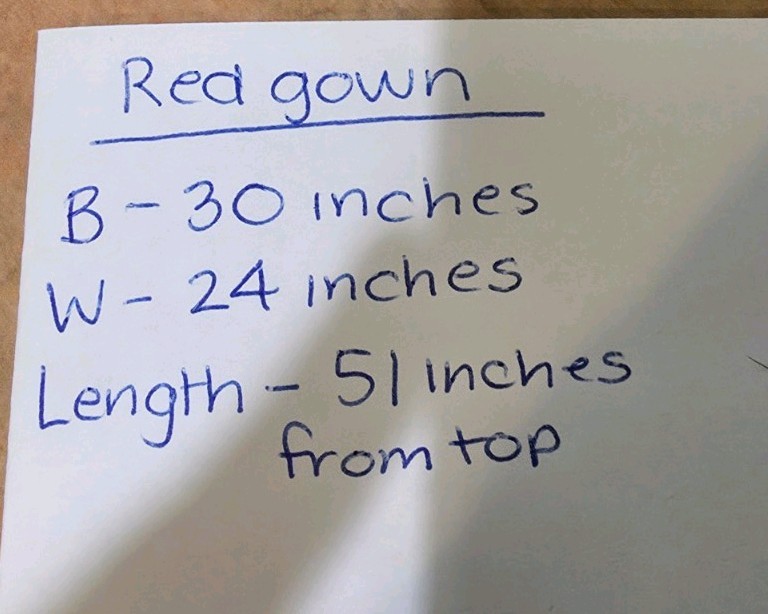 Red gown
B - 30 inches
W - 24 inches
Length - 51 inches
from top